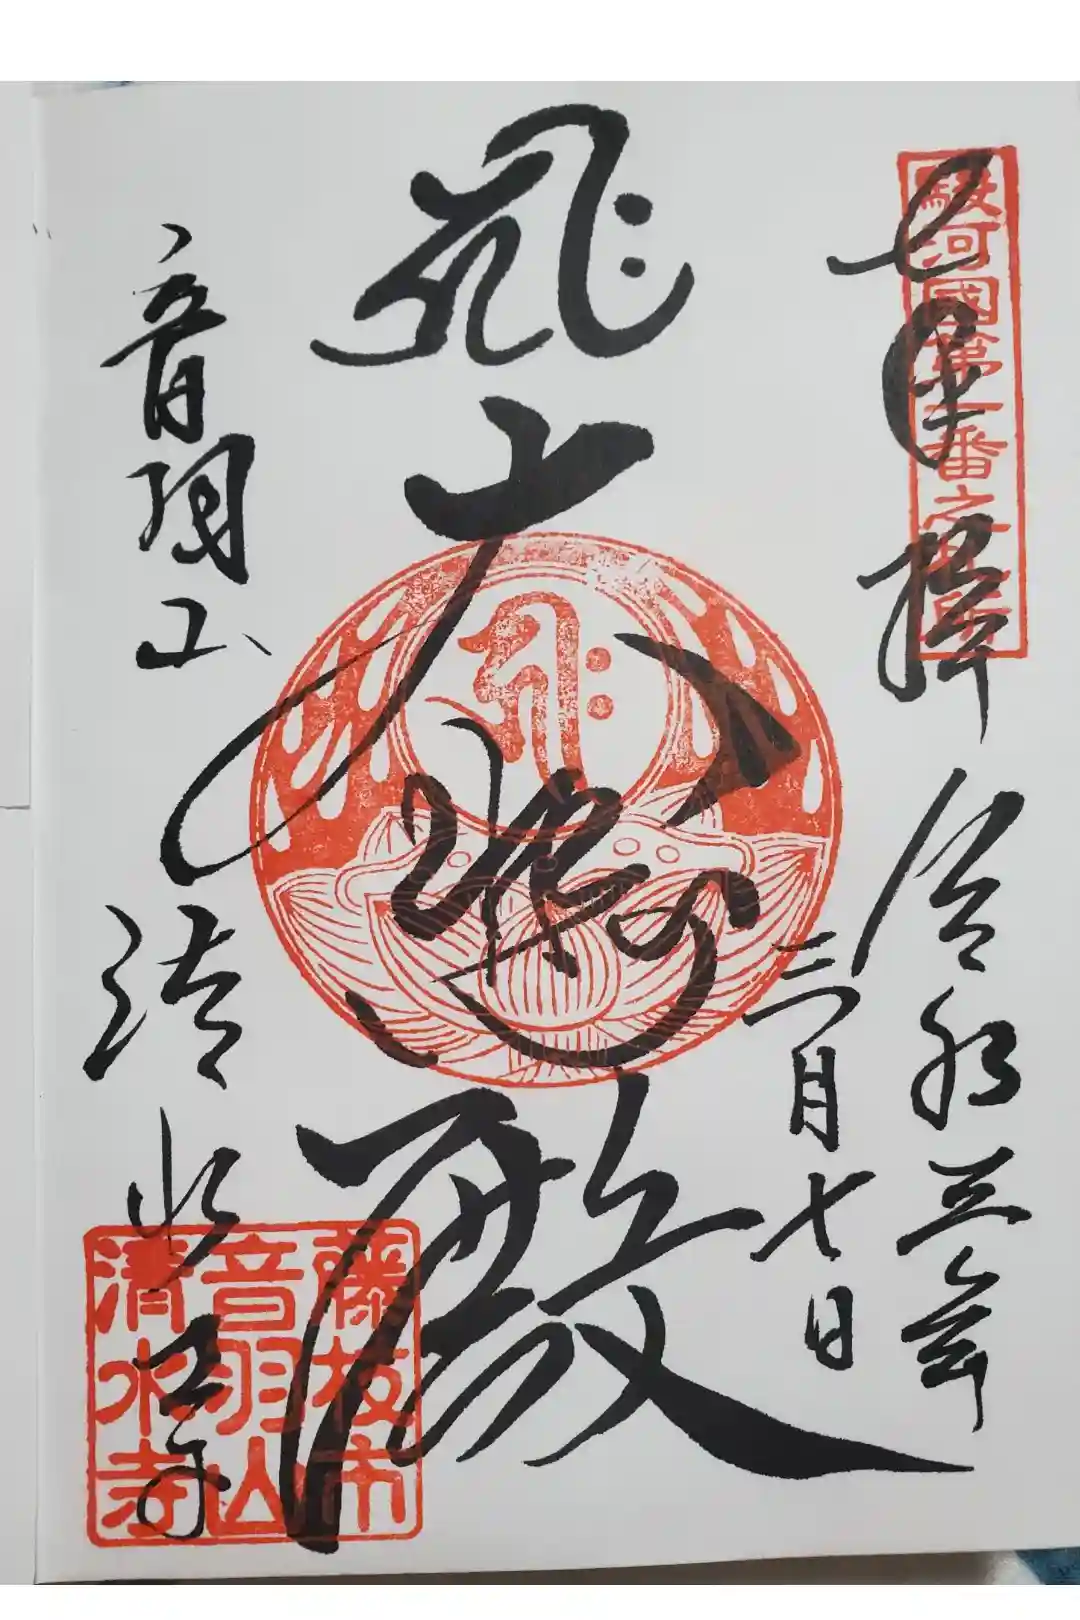 駿河國第一番之札所
拝
三月七日
ह्रीः
大悲殿
音羽山 清水寺
藤枝市
音羽山
清水寺